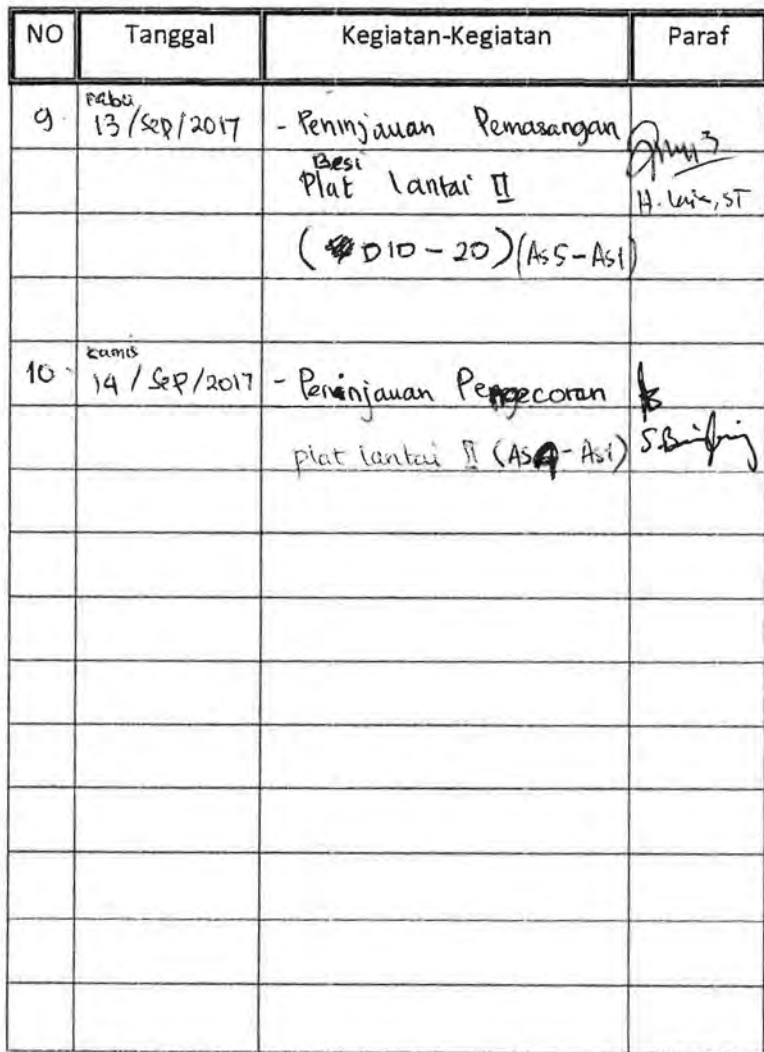 NO Tanggal Kegiatan-Kegiatan Paraf
Rabu
9. 13/Sep/2017 - Peninjauan Pemasangan
Besi
Plat lantai II
H. , ST
(D10-20)(As5-As1)
Kamis
10. 14/Sep/2017 - Peninjauan Pengecoran
plat lantai II (As4-As1)